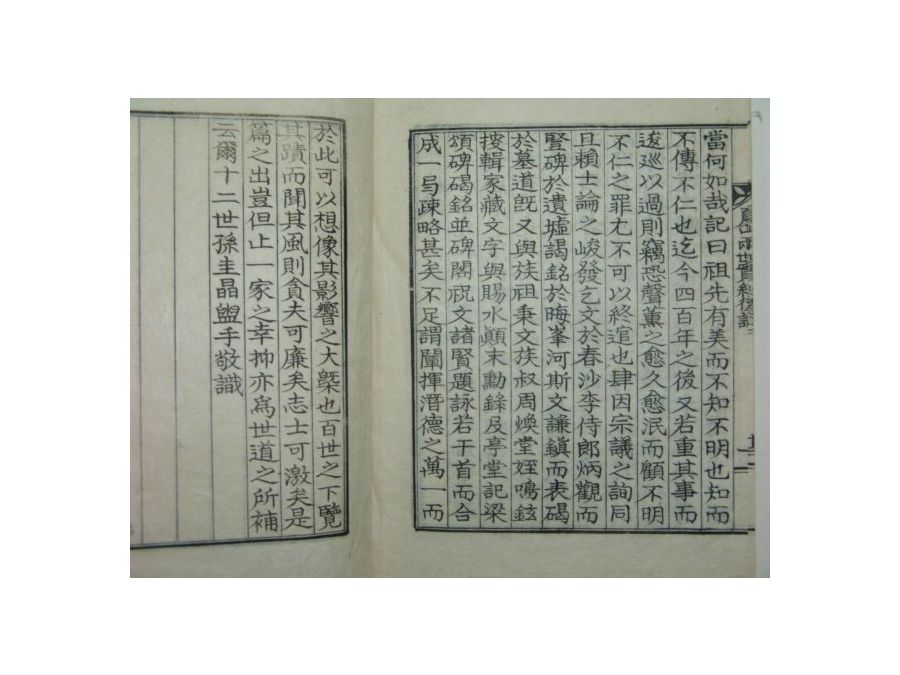 當何如哉記曰祖先有美而不知不明也知而
不傳不仁也迄今四百年之後又若重其事而
逡巡以過則竊恐聲薰之愈久愈泯而顧不明
不仁之罪尤不可以終逭也肆因宗議之詢同
且賴士論之峻發乞文於春沙李侍郎炳觀而
豎碑於遺墟謁銘於晦峯河斯文謙鎭而表碣
於墓道旣又與族祖秉文族叔周煥堂姪鳴鉉
搜輯家藏文字與賜水顚末勳錄及亭堂記梁
頌碑碣銘並碑閣祝文諸賢題詠若干首而合
成一局疎略甚矣不足謂闡揮潛德之萬一而
於此可以想像其影響之大槩也百世之下覽
其蹟而聞其風則貪夫可廉矣志士可激矣是
篇之出豈但止一家之幸抑亦爲世道之所補
云爾十二世孫圭晶盥手敬識